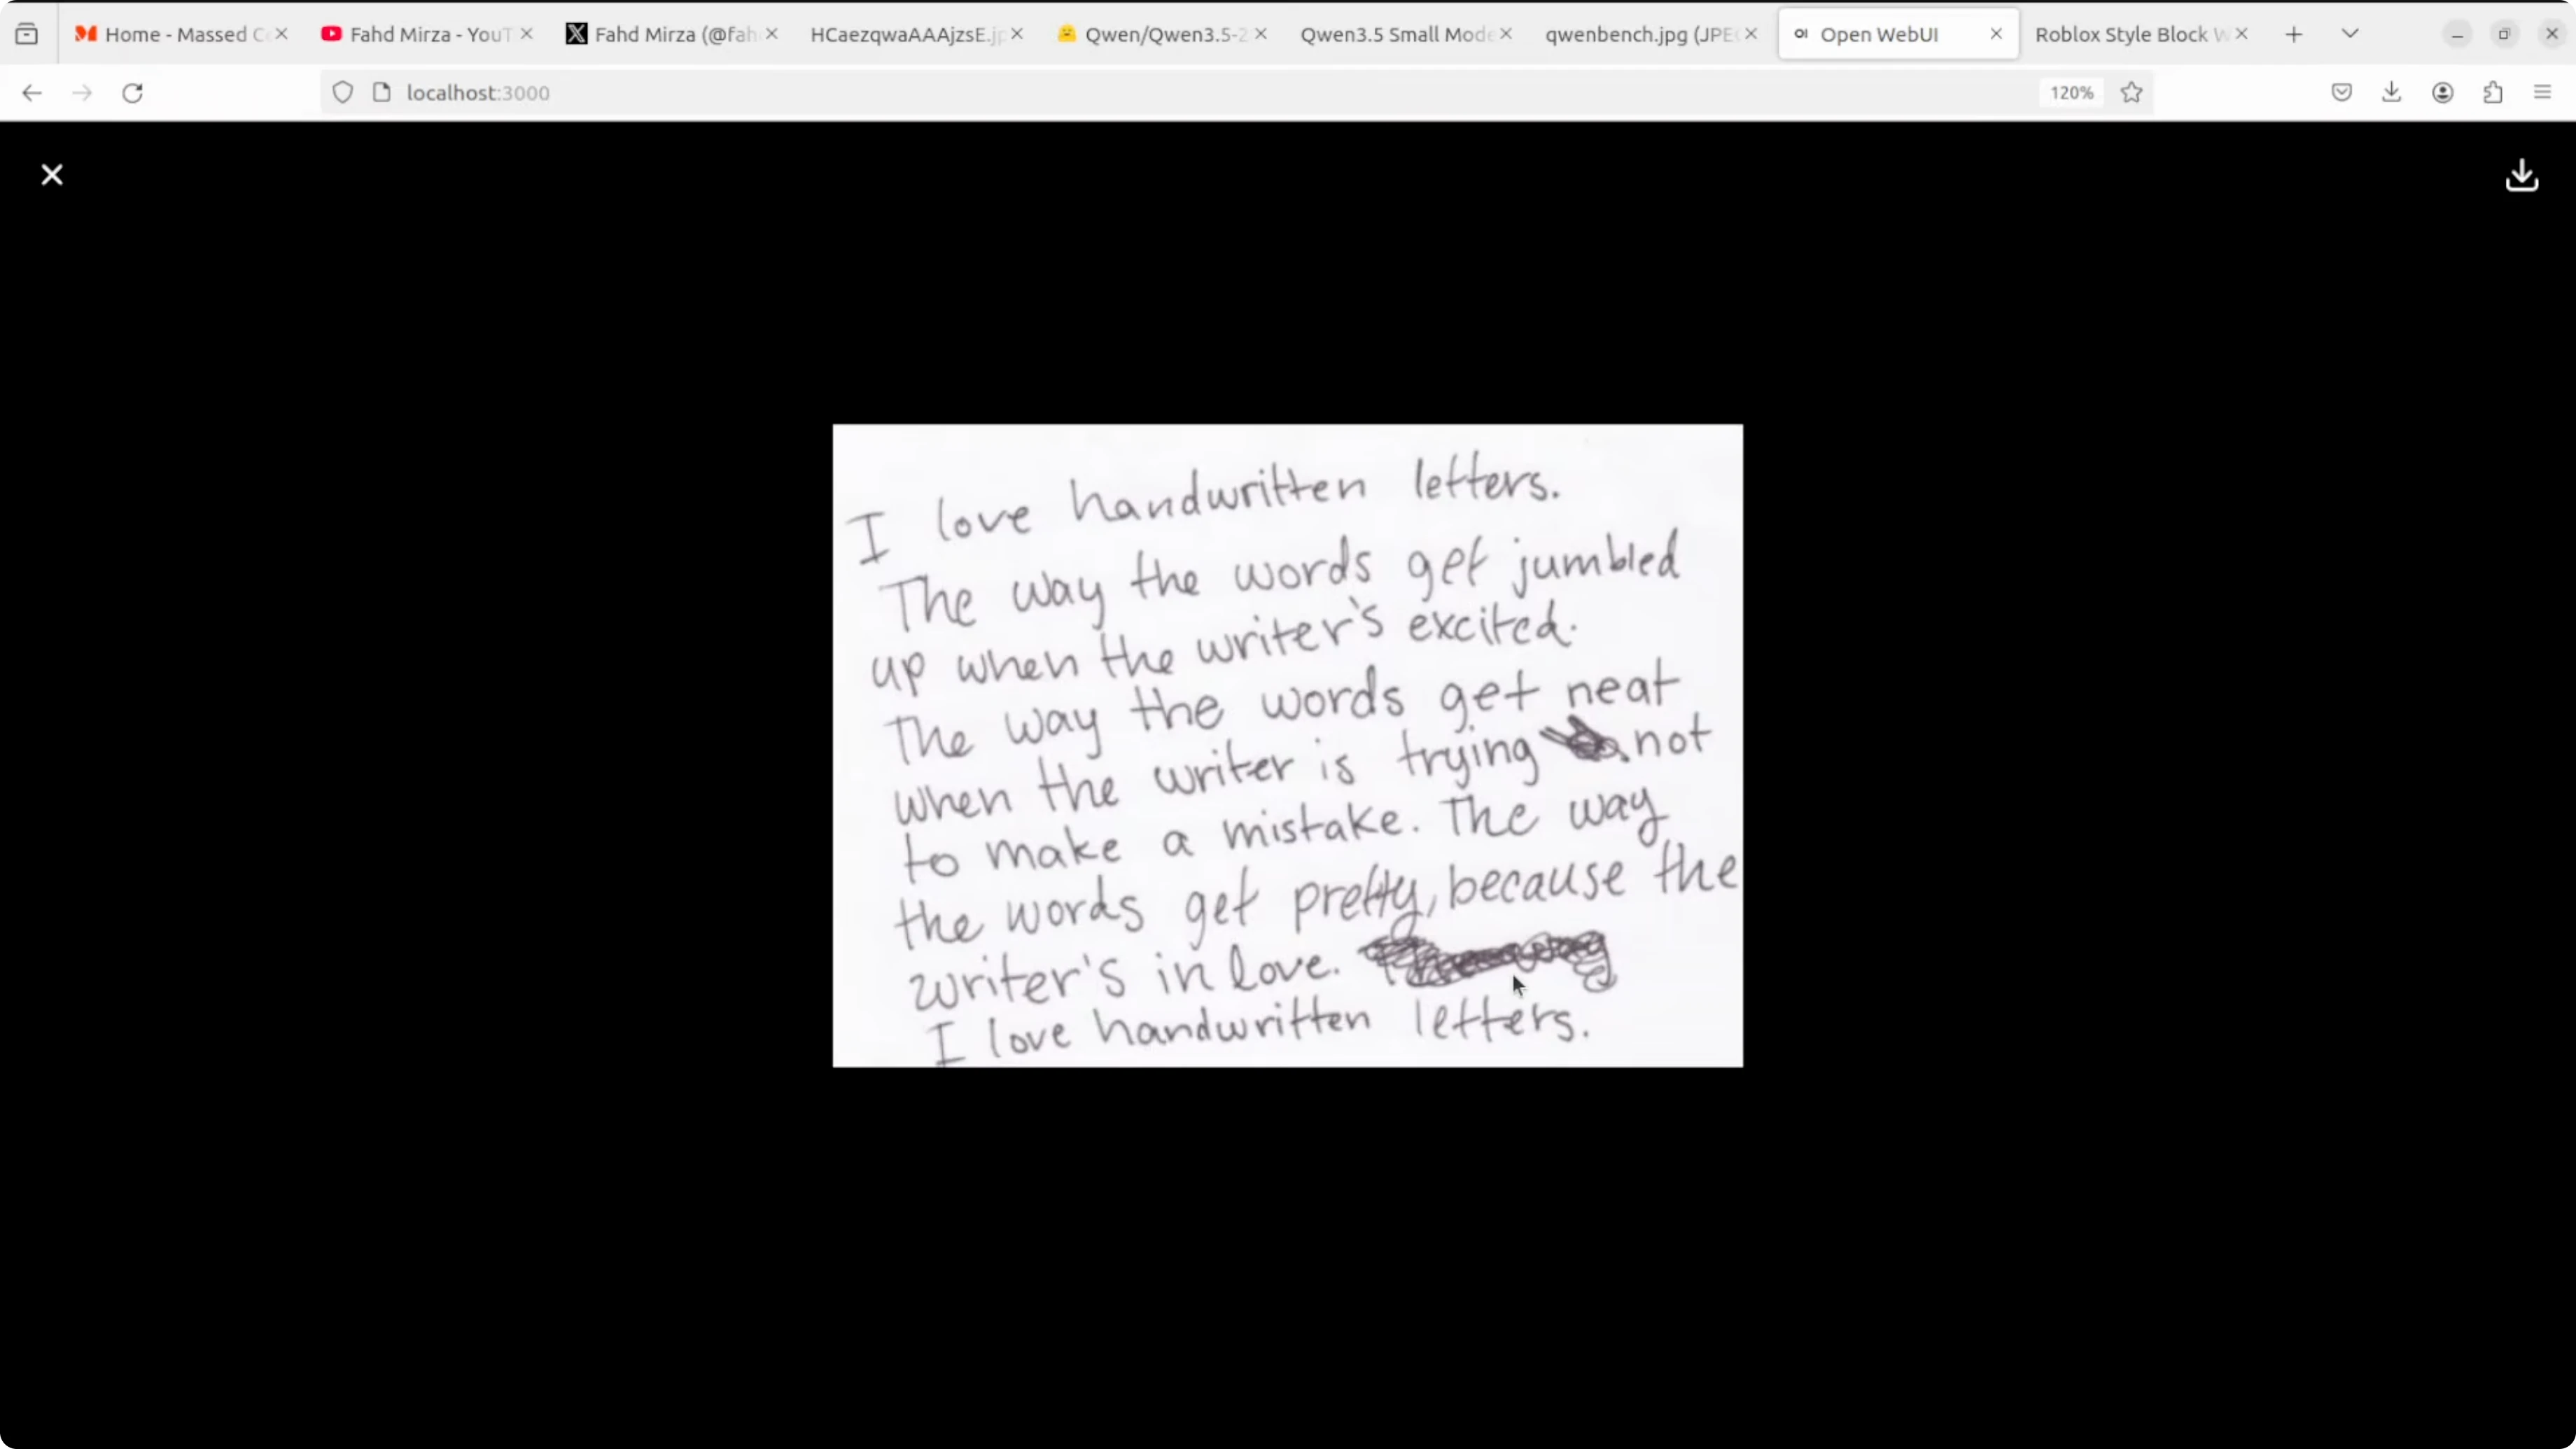 Home - Massed C
Fahd Mirza - YouT
Fahd Mirza (@fah
HCaezqwaAAAjzsE.jp
Qwen/Qwen3.5-2
Qwen3.5 Small Mode
qwenbench.jpg (JPE
OI Open WebUI
Roblox Style Block W
localhost:3000
120%
I love handwritten letters.
The way the words get jumbled
up when the writer's excited.
The way the words get neat
when the writer is trying not
to make a mistake. The way
the words get pretty, because the
writer's in love.
I love handwritten letters.